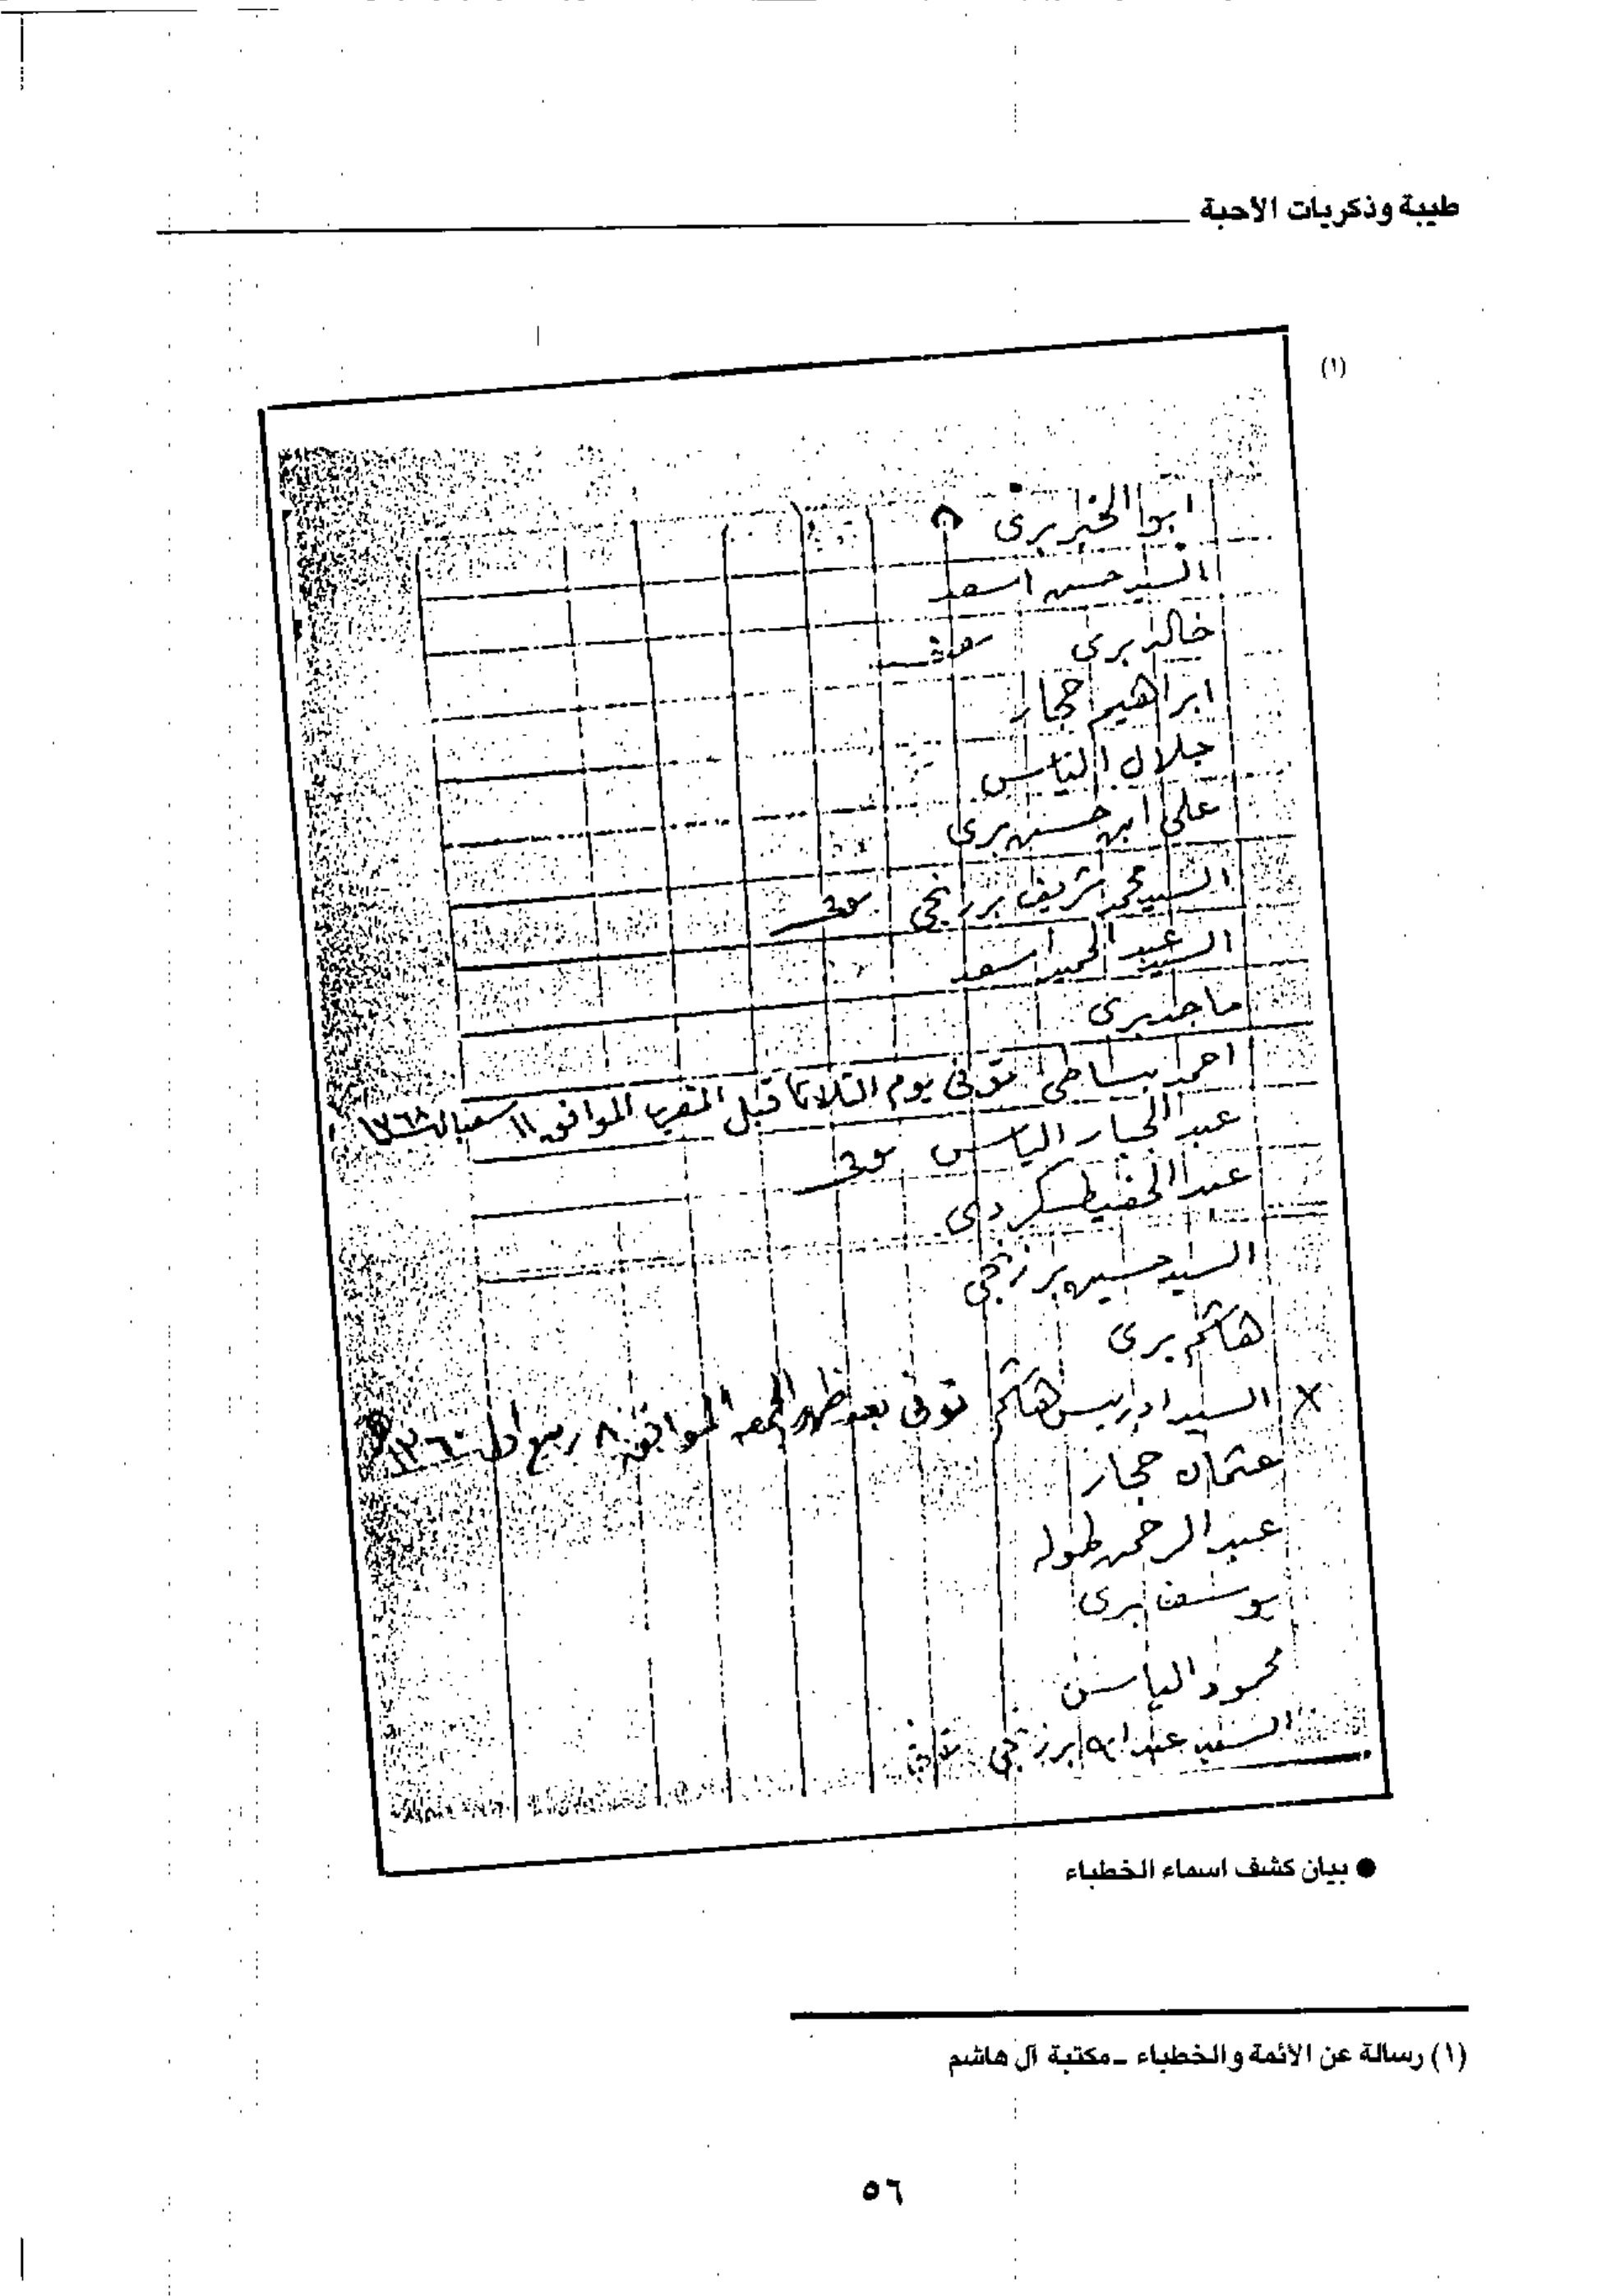 طيبة وذكريات الأحبة
(١)
ابوا الخير برى
السيد حسن اسعد
خالد برى
ابراهيم حجار
جلال الياس
على ابن حسن برى
السيد محمد شريف برزنجي
السيد عبد الحميد اسعد
ماجد برى
احمد بساطى توفى يوم الثلاثا قبل المغرب الموافق ١١
عبد الجبار الياس
عبد الحفيظ كردى
السيد حسين برزنجي
هاشم برى
X السيد ادريس هاشم توفى بعد ظهر الجمعه الموافق ٨ ربيع اول ١٣٦٠
عثمان حجار
عبد الرحمن طوله
يوسف برى
محمود الياس
السيد عبد الله برزنجي
● بيان كشف اسماء الخطباء
(١) رسالة عن الأئمة والخطباء - مكتبة آل هاشم
٥٦